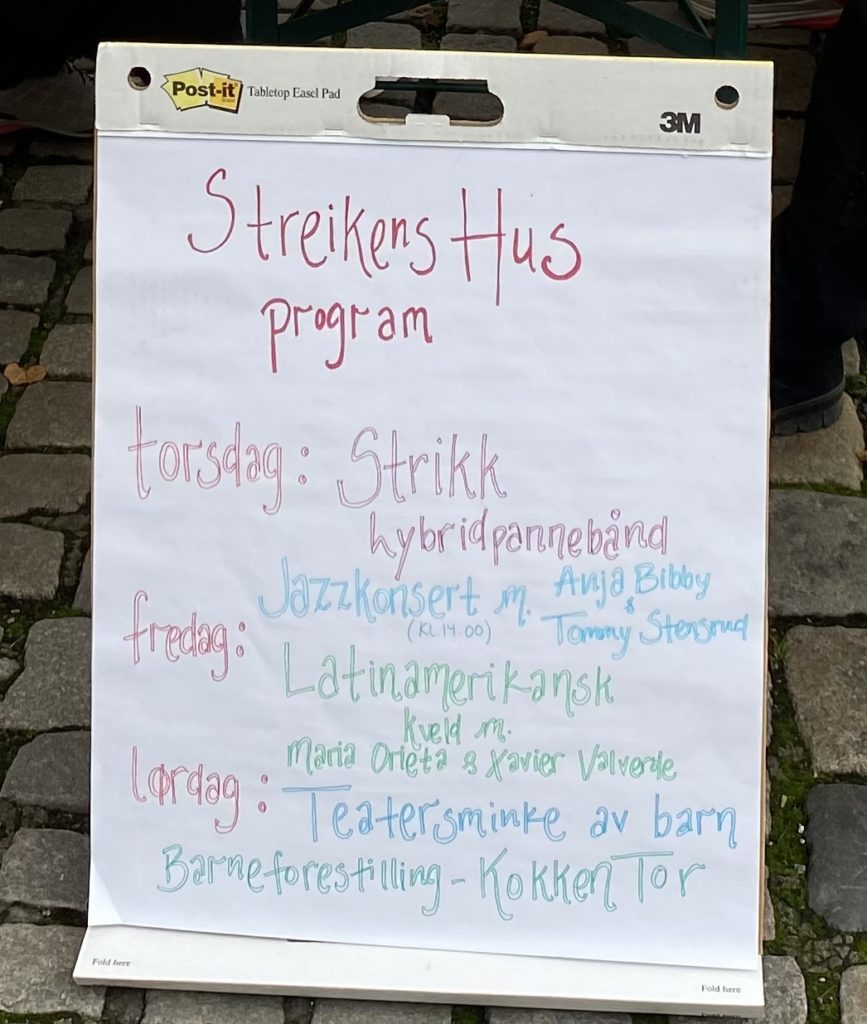 Post-it Tabletop Easel Pad
3M
Streikens Hus
program
torsdag: Strikk
hybridpannebånd
fredag: Jazzkonsert m. Anja Bibby
(KL.14.00) & Tommy Stensrud
Latinamerikansk
kveld m.
Maria Orieta & Xavier Valverde
lørdag: Teatersminke av barn
Barneforestilling - Kokken Tor
Fold here
Fold here